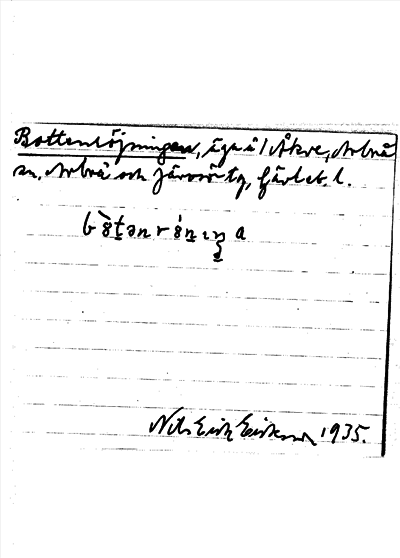 Bottenröjningen, ägu i Åkre, Arbrå
sn, Arbrå och Järvsö tg, Gävleb. l.
Nils Erik Eriksson 1935.